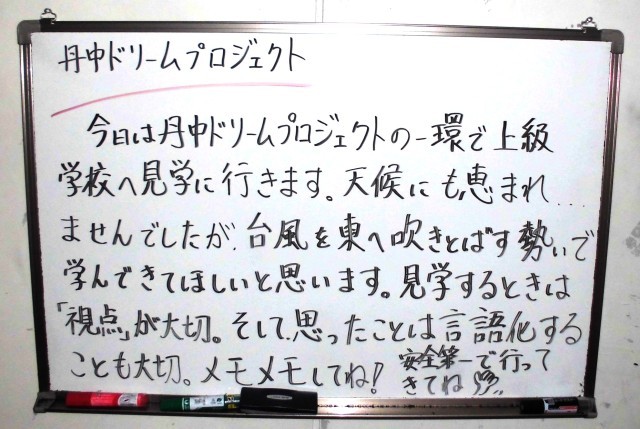 丹中ドリームプロジェクト
今日は丹中ドリームプロジェクトの一環で上級
学校へ見学に行きます。天候にも恵まれ...
ませんでしたが、台風を東へ吹きとばす勢いで
学んできてほしいと思います。見学するときは
「視点」が大切。そして、思ったことは言語化する
ことも大切。メモメモしてね!
安全第一で行って
きてね